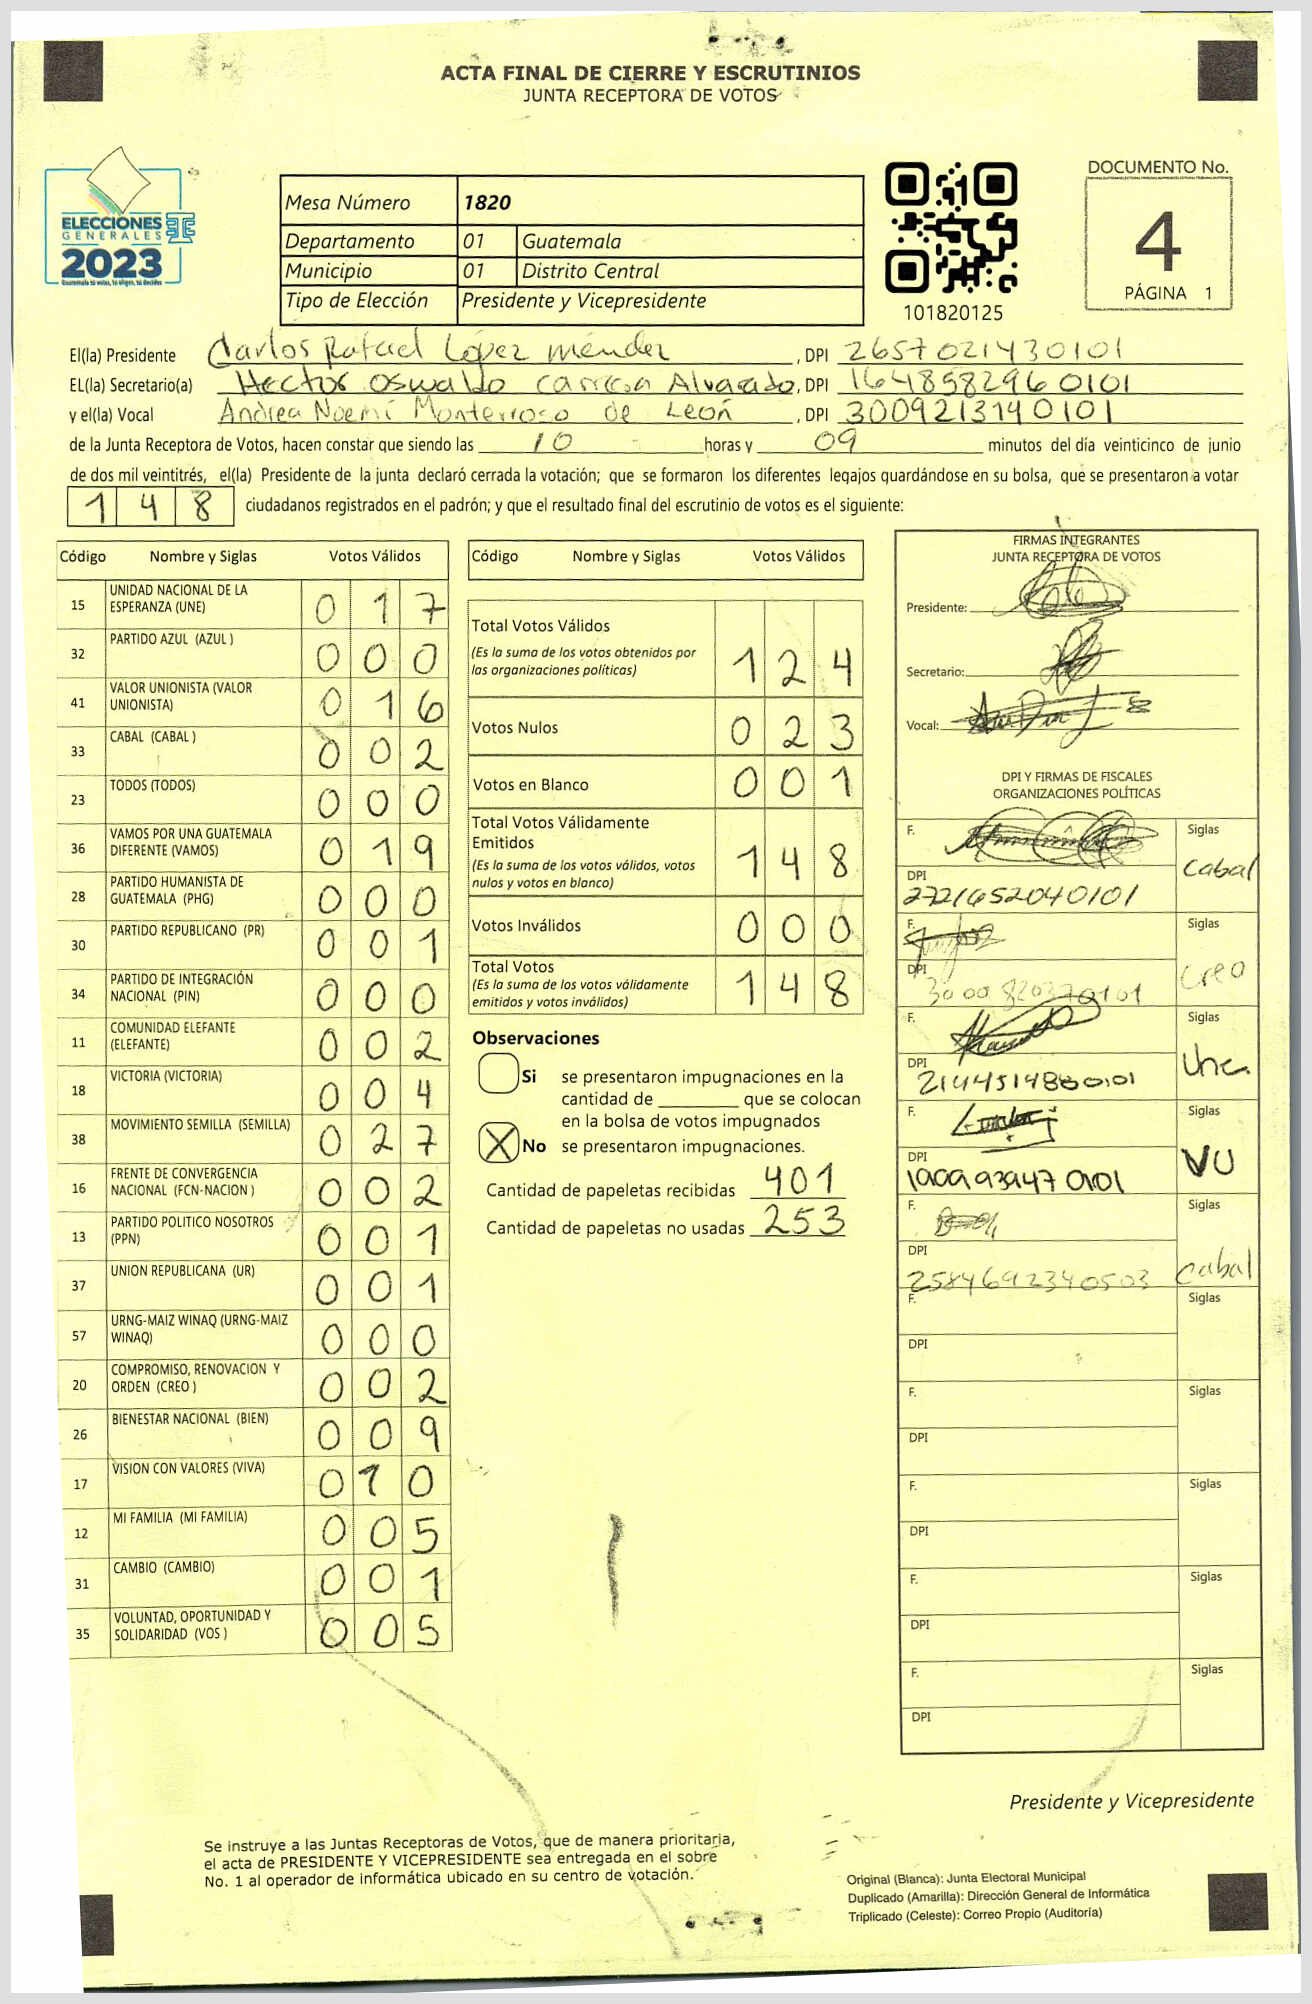 ACTA FINAL DE CIERRE Y ESCRUTINIOS
JUNTA RECEPTORA DE VOTOS
ELECCIONES
GENERALES
2023
Guatemala tú votas, tú eliges, tú decides
Mesa Número 1820
Departamento 01 Guatemala
Municipio 01 Distrito Central
Tipo de Elección Presidente y Vicepresidente
101820125
DOCUMENTO No.
4
PÁGINA 1
El(la) Presidente Carlos Rafael López Méndez, DPI 2657021430101
EL(la) Secretario(a) Hector Oswaldo Alvarado, DPI 1648582960101
y el(la) Vocal Andrea Noemí Monterroso de León, DPI 3009213140101
de la Junta Receptora de Votos, hacen constar que siendo las 10 horas y 09 minutos del día veinticinco de junio
de dos mil veintitrés, el(la) Presidente de la junta declaró cerrada la votación; que se formaron los diferentes legajos guardándose en su bolsa, que se presentaron a votar
148 ciudadanos registrados en el padrón; y que el resultado final del escrutinio de votos es el siguiente:
Código Nombre y Siglas Votos Válidos
15 UNIDAD NACIONAL DE LA ESPERANZA (UNE) 017
32 PARTIDO AZUL (AZUL ) 000
41 VALOR UNIONISTA (VALOR UNIONISTA) 016
33 CABAL (CABAL ) 002
23 TODOS (TODOS) 000
36 VAMOS POR UNA GUATEMALA DIFERENTE (VAMOS) 019
28 PARTIDO HUMANISTA DE GUATEMALA (PHG) 000
30 PARTIDO REPUBLICANO (PR) 001
34 PARTIDO DE INTEGRACIÓN NACIONAL (PIN) 000
11 COMUNIDAD ELEFANTE (ELEFANTE) 002
18 VICTORIA (VICTORIA) 004
38 MOVIMIENTO SEMILLA (SEMILLA) 027
16 FRENTE DE CONVERGENCIA NACIONAL (FCN-NACION ) 002
13 PARTIDO POLITICO NOSOTROS (PPN) 001
37 UNION REPUBLICANA (UR) 001
57 URNG-MAIZ WINAQ (URNG-MAIZ WINAQ) 000
20 COMPROMISO, RENOVACION Y ORDEN (CREO ) 002
26 BIENESTAR NACIONAL (BIEN) 009
17 VISION CON VALORES (VIVA) 010
12 MI FAMILIA (MI FAMILIA) 005
31 CAMBIO (CAMBIO) 001
35 VOLUNTAD, OPORTUNIDAD Y SOLIDARIDAD (VOS ) 005
Código Nombre y Siglas Votos Válidos
Total Votos Válidos 124
(Es la suma de los votos obtenidos por
las organizaciones políticas)
Votos Nulos 023
Votos en Blanco 001
Total Votos Válidamente
Emitidos 148
(Es la suma de los votos válidos, votos
nulos y votos en blanco)
Votos Inválidos 000
Total Votos 148
(Es la suma de los votos válidamente
emitidos y votos inválidos)
Observaciones
Si se presentaron impugnaciones en la
cantidad de ________ que se colocan
en la bolsa de votos impugnados
X No se presentaron impugnaciones.
Cantidad de papeletas recibidas 401
Cantidad de papeletas no usadas 253
FIRMAS INTEGRANTES
JUNTA RECEPTORA DE VOTOS
Presidente:
Secretario:
Vocal:
DPI Y FIRMAS DE FISCALES
ORGANIZACIONES POLÍTICAS
F. Siglas Cabal
DPI 2721652040101
F. Siglas Creo
DPI
F. Siglas Une
DPI 2144514880101
F. Siglas VU
DPI
F. Siglas Cabal
DPI 2584692340503
F. Siglas
DPI
F. Siglas
DPI
F. Siglas
DPI
F. Siglas
DPI
F. Siglas
DPI
Presidente y Vicepresidente
Se instruye a las Juntas Receptoras de Votos, que de manera prioritaria,
el acta de PRESIDENTE Y VICEPRESIDENTE sea entregada en el sobre
No. 1 al operador de informática ubicado en su centro de votación.
Original (Blanca): Junta Electoral Municipal
Duplicado (Amarilla): Dirección General de Informática
Triplicado (Celeste): Correo Propio (Auditoria)